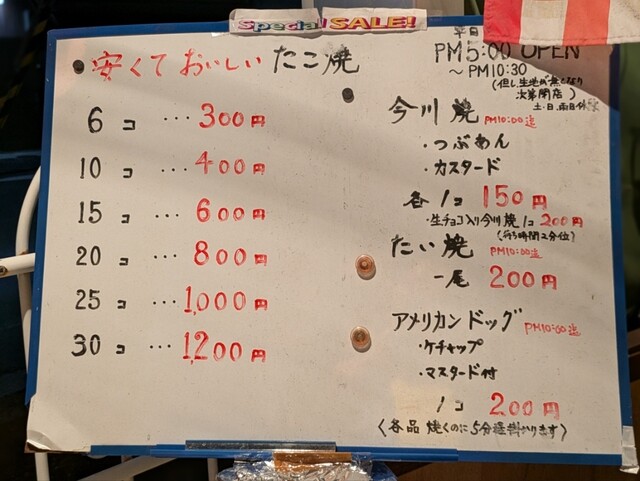 Special SALE!
安くておいしい たこ焼
6コ … 300円
10コ … 400円
15コ … 600円
20コ … 800円
25コ … 1,000円
30コ … 1,200円
平日
PM5:00 OPEN
〜PM10:30
(但し生地が無くなり
次第閉店)
土・日、雨日休
今川焼 PM10:00迄
・つぶあん
・カスタード
各1コ 150円
・生チョコ入り今川焼1コ 200円
(待ち時間2分位)
たい焼 PM10:00迄
一尾 200円
アメリカンドッグ PM10:00迄
・ケチャップ
・マスタード付
1コ 200円
〈各品 焼くのに5分程掛かります〉